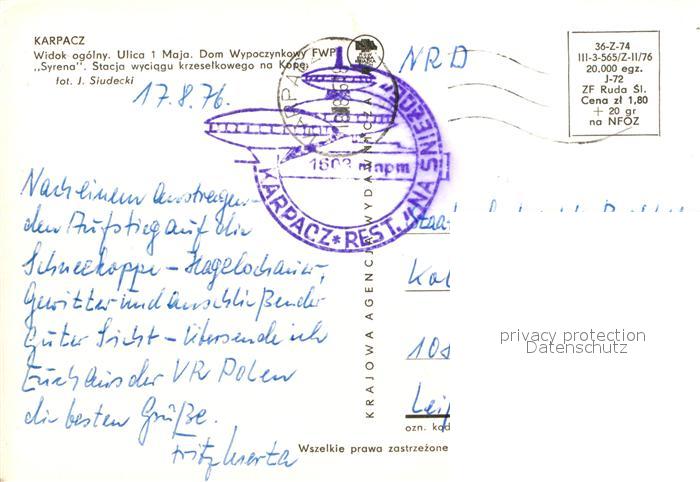 KARPACZ
Widok ogólny. Ulica 1 Maja. Dom Wypoczynkowy FWP
„Syrena". Stacja wyciągu krzesełkowego na Kopę
fot. J. Siudecki
17.8.76.
NRD
36-Z-74
III-3-565/Z-II/76
20.000 egz.
J-72
ZF Ruda Śl.
Cena zł 1,80
+ 20 gr
na NFOZ
1602 mnpm
KARPACZ * REST. "NA ŚNIEŻCE"
KRAJOWA AGENCJA WYDAWNICZA
Nach einem anstregen-
den Aufstieg auf die
Schneekoppe –
Gewitter und anschließender
guter Sicht – übersende ich
Euch aus der VR Polen
die besten Grüße.
Fritz
10
Leip
privacy protection
Datenschutz
ozn. kod
Wszelkie prawa zastrzeżone